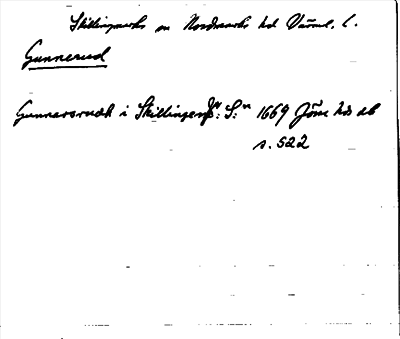 Skillingmarks sn Nordmarks hd Värml. l.
Gunnerud
Gunnersrudh i Skillingem: S:n 1669 Jösse hds db
s. 522